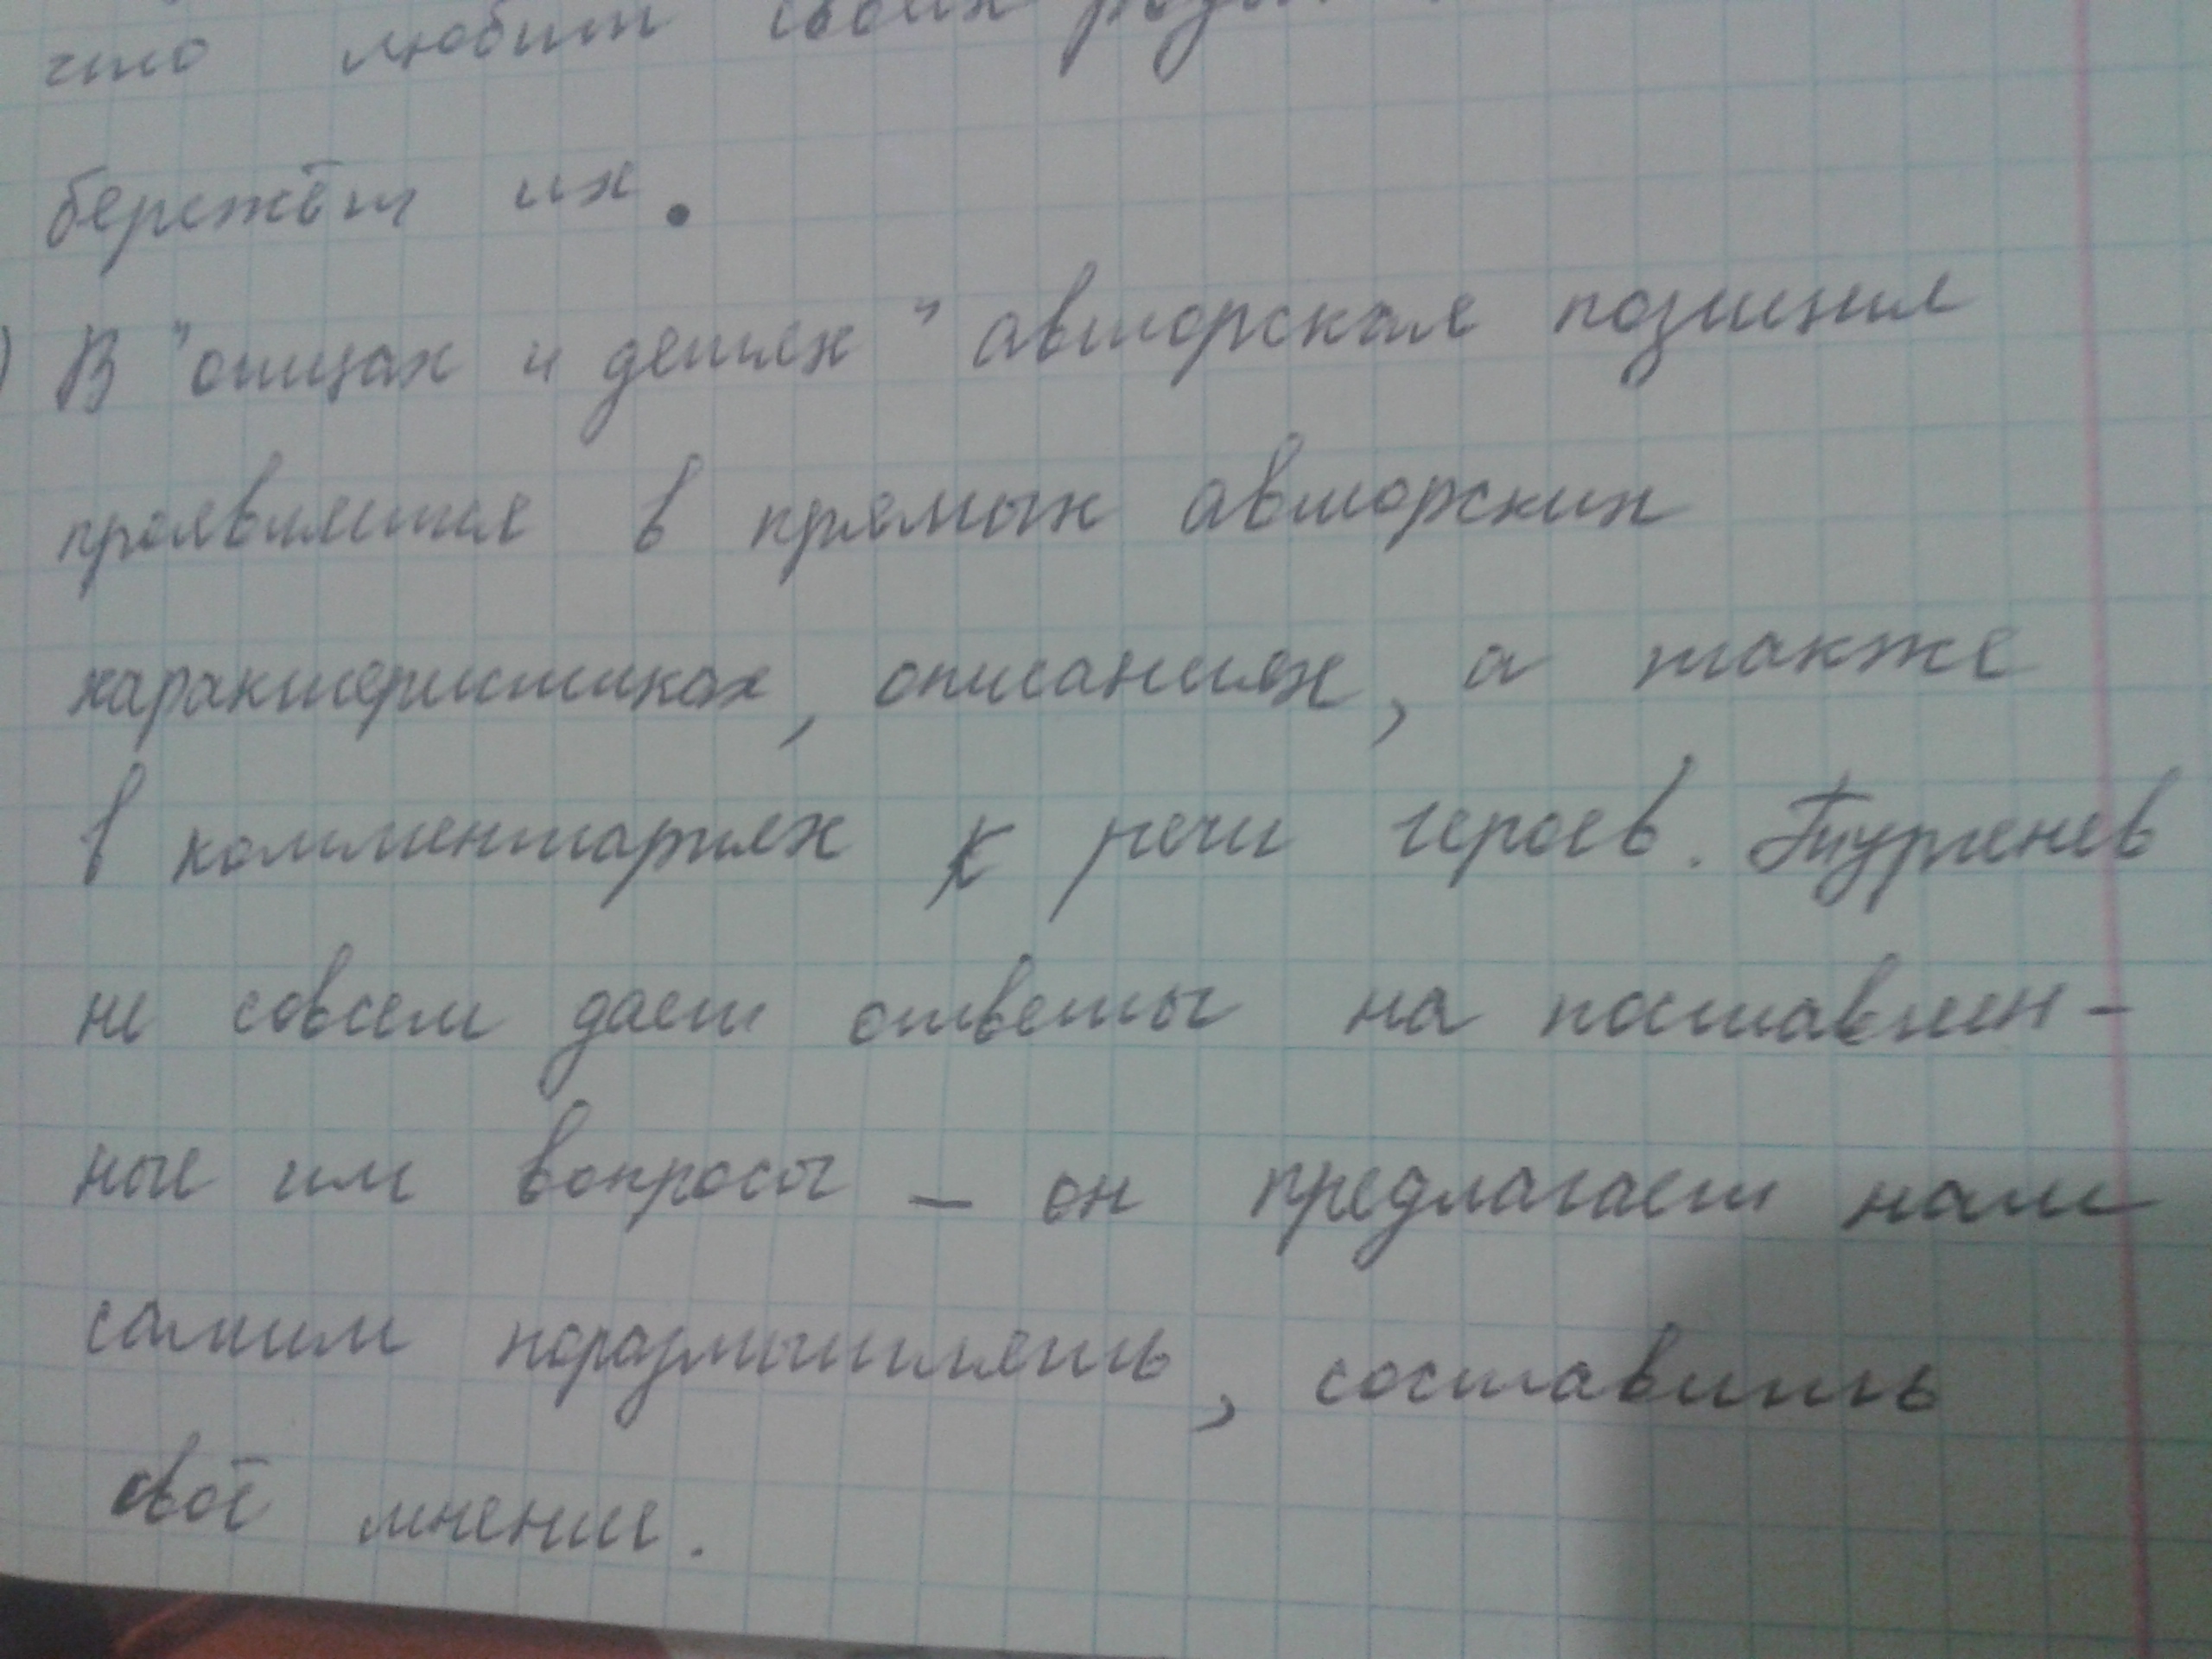 что любит своих
бережёт их.
) В "отцах и детях" авторская позиция
проявляется в прямых авторских
характеристиках, описаниях, а также
в комментариях к речи героев. Тургенев
не совсем дает ответы на поставлен-
ные им вопросы – он предлагает нам
самим поразмышлять, составить
своё мнение.